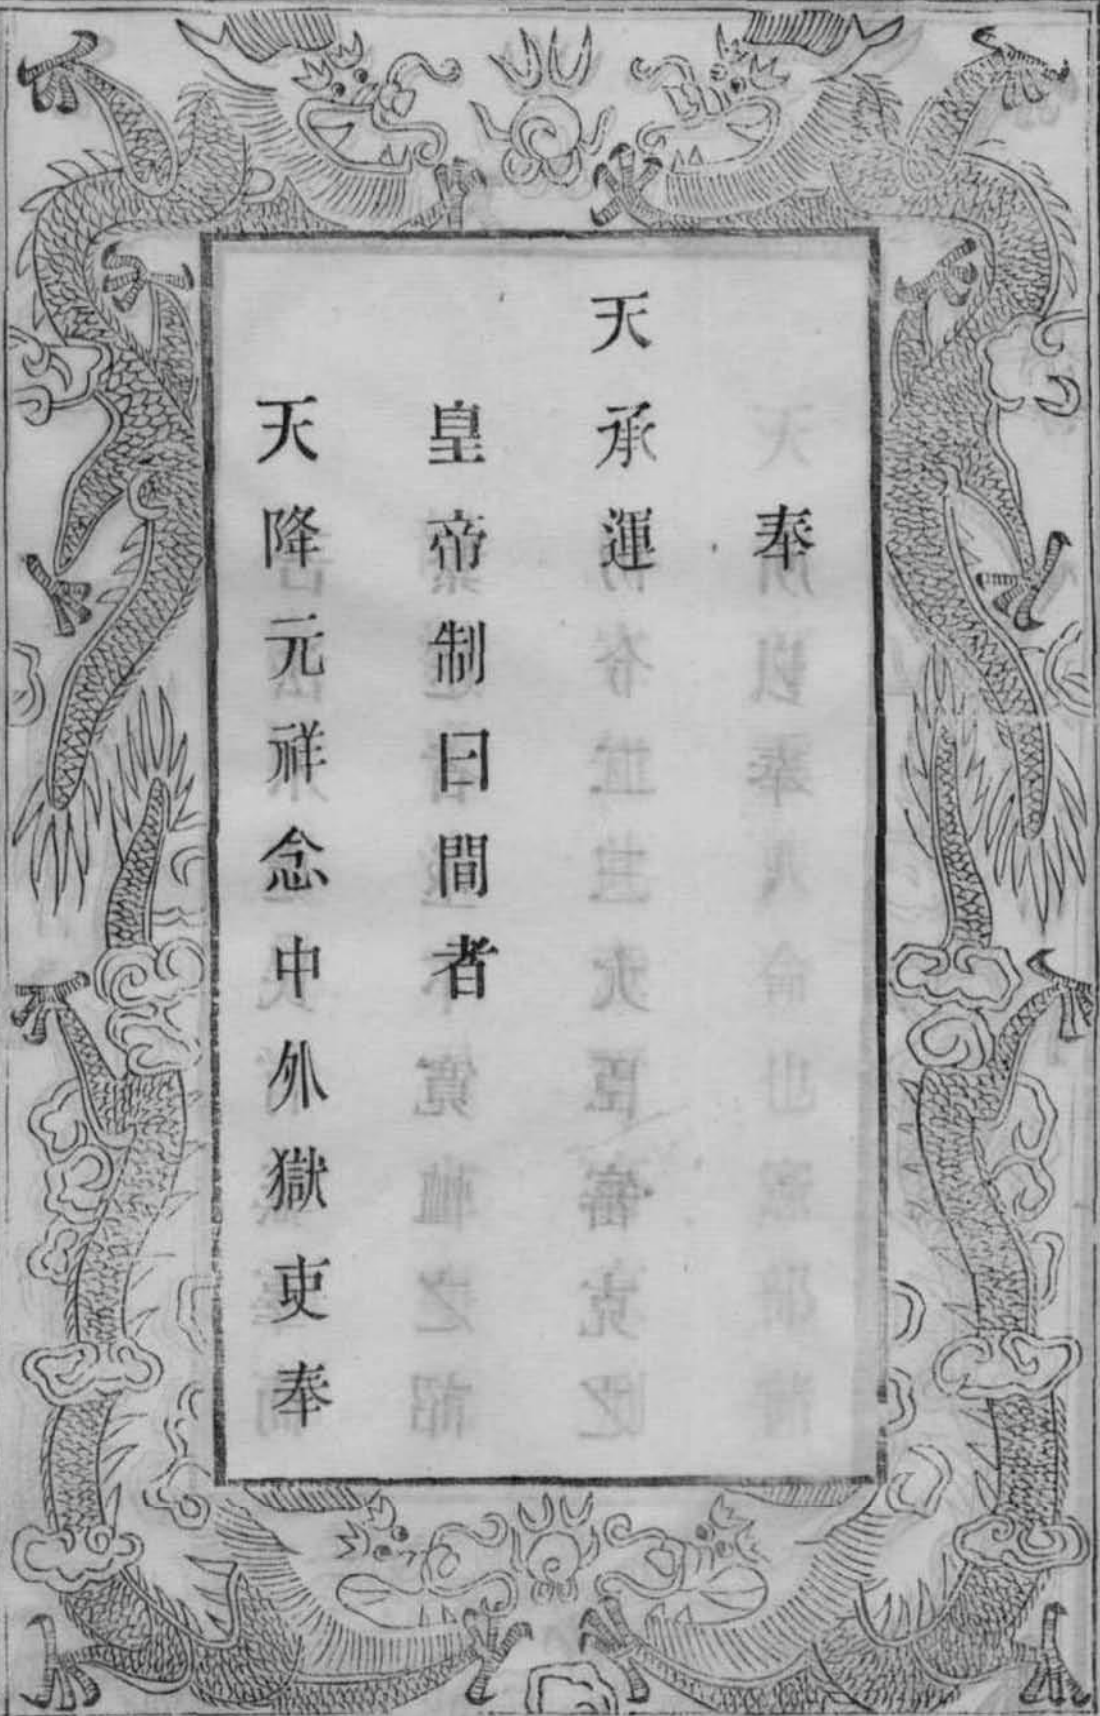 奉
天承運
皇帝制曰間者
天降元祥念中外獄吏奉